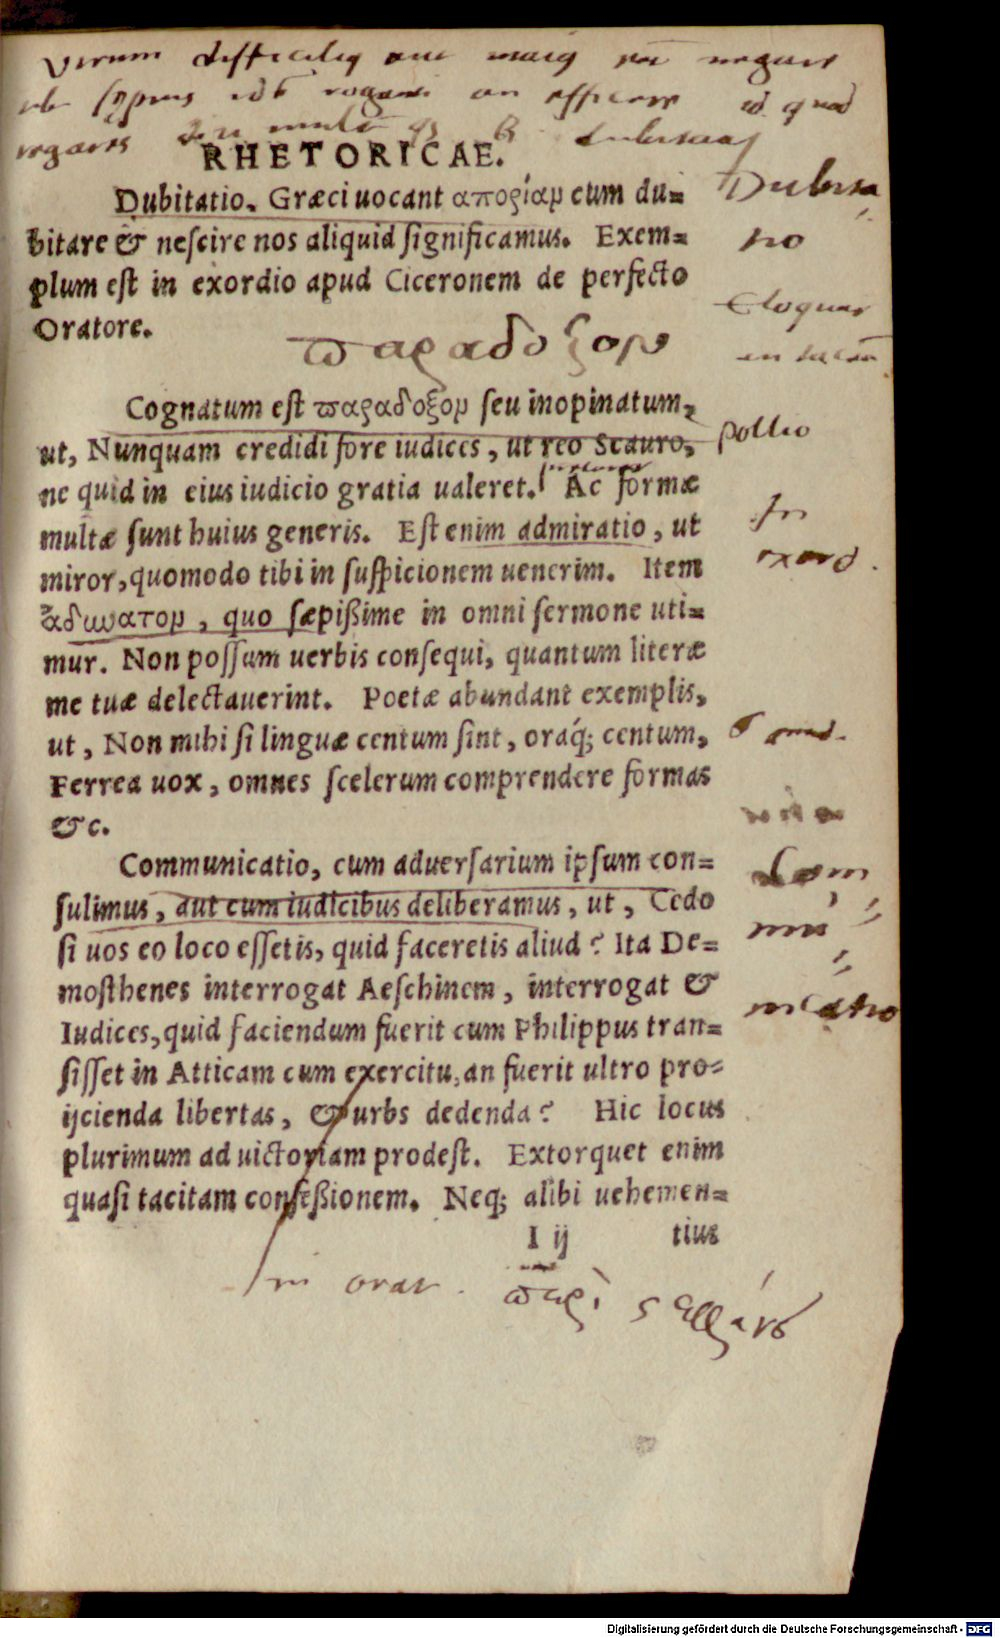 Vtrum difficilius aut maius esset negare
tibi sępius idem roganti an efficere id quod
rogares diu multumque dubitaui
RHETORICAE.
Dubitatio. Græci uocant απορίαμ cum du=
bitare & nescire nos aliquid significamus. Exem=
plum est in exordio apud Ciceronem de perfecto
Oratore.
Dubita
tio
Eloquar
an taceam
ϖαραδοξον
Cognatum est ϖαραδοξον seu inopinatum,
ut, Nunquam credidi fore iudices, ut reo Scauro,
ne quid in eius iudicio gratia ualeret. Ac formæ
multæ sunt huius generis. Est enim admiratio, ut
miror, quomodo tibi in suspicionem uenerim. Item
ἀδωατομ, quo sæpißime in omni sermone uti=
mur. Non possum uerbis consequi, quantum literæ
me tuæ delectauerint. Poetæ abundant exemplis,
ut, Non mihi si linguæ centum sint, oraq; centum,
Ferrea uox, omnes scelerum comprendere formas
&c.
pollio
In
exord.
6 æneid.
Communicatio, cum aduersarium ipsum con=
sulimus, aut cum iudicibus deliberamus, ut, Cedo
si uos eo loco essetis, quid faceretis aliud? Ita De=
mosthenes interrogat Aeschinem, interrogat &
Iudices, quid faciendum fuerit cum Philippus tran=
sisset in Atticam cum exercitu, an fuerit ultro pro=
ijcienda libertas, & urbs dedenda? Hic locus
plurimum ad uictoriam prodest. Extorquet enim
quasi tacitam confeßionem. Neq; alibi uehemen=
I ij tius
Com
mu
nicatio
in orat. ϖερὶ
Digitalisierung gefördert durch die Deutsche Forschungsgemeinschaft - DFG